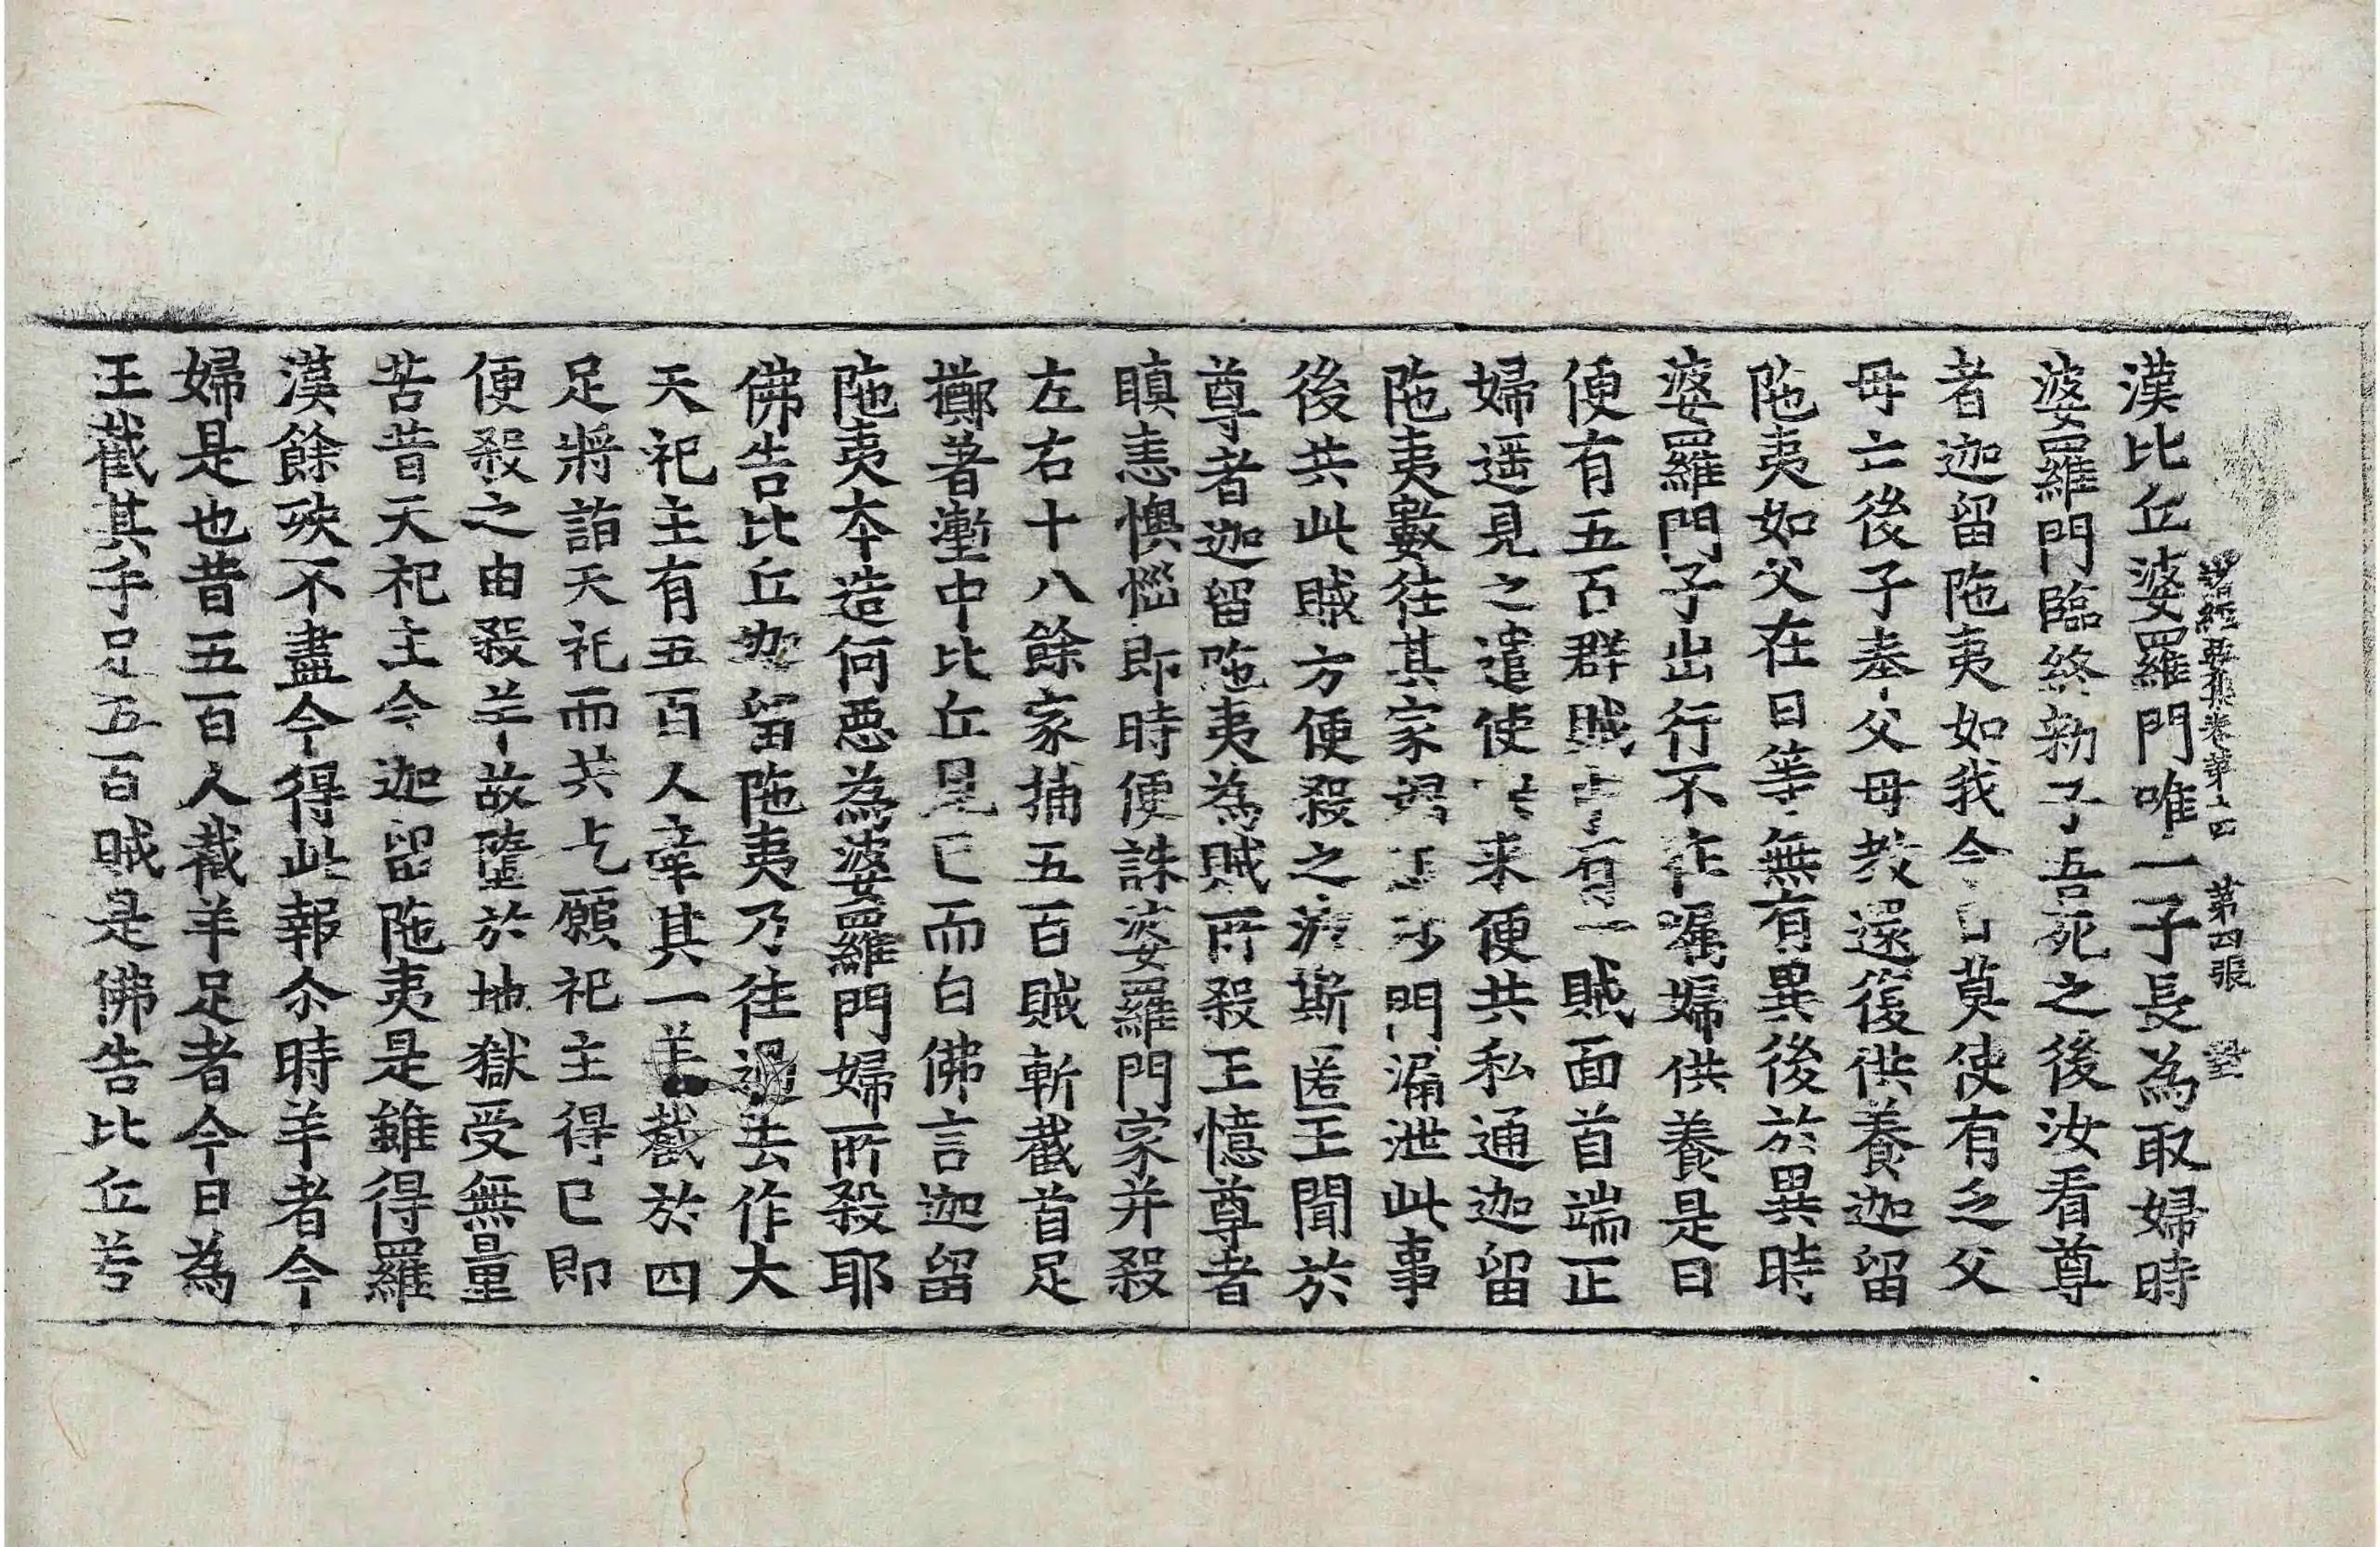 諸經要集卷第十四 第四張
漢比丘婆羅門唯一子長為取婦時
婆羅門臨終勑子吾死之後汝看尊
者迦留陁夷如我今日莫使有乏父
母亡後子奉父母教還復供養迦留
陁夷如父在日等無有異後於異時
婆羅門子出行不在囑婦供養是日
便有五百群賊中有一賊面首端正
婦遥見之遣使來便共私通迦留
陁夷數往其家婦沙門漏泄此事
後共此賊方便殺之波斯匿王聞於
尊者迦留陁夷為賊所殺王憶尊者
瞋恚懊惱即時便誅婆羅門家并殺
左右十八餘家捕五百賊斬截首足
擲著壍中比丘見已而白佛言迦留
陁夷本造何惡為婆羅門婦所殺耶
佛告比丘迦留陁夷乃往過去作大
天祀主有五百人牽其一羊截於四
足將詣天祀而共乞願祀主得已即
便殺之由殺羊故墮於地獄受無量
苦昔天祀主今迦留陁夷是雖得羅
漢餘殃不盡今得此報尒時羊者今
婦是也昔五百人截羊足者今日為
王截其手足五百賊是佛告比丘若